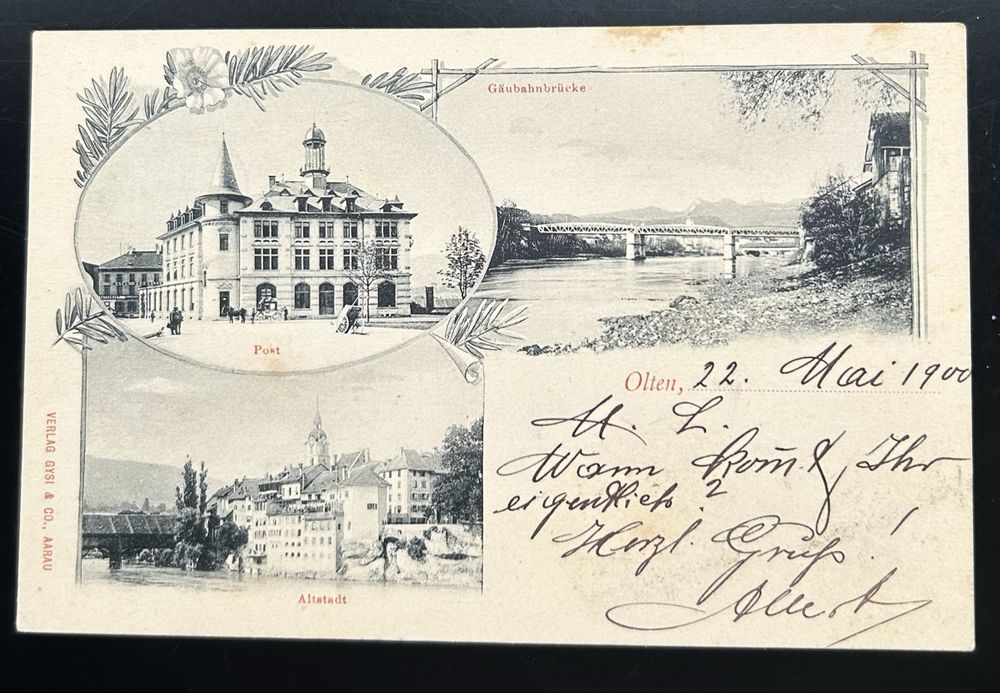 Gäubahnbrücke
Post
Altstadt
VERLAG GYSI & CO., AARAU
Olten, 22. Mai 1900
M. L.
Wann kom̅t Ihr
eigentlich?
Herzl. Gruß!
Albert